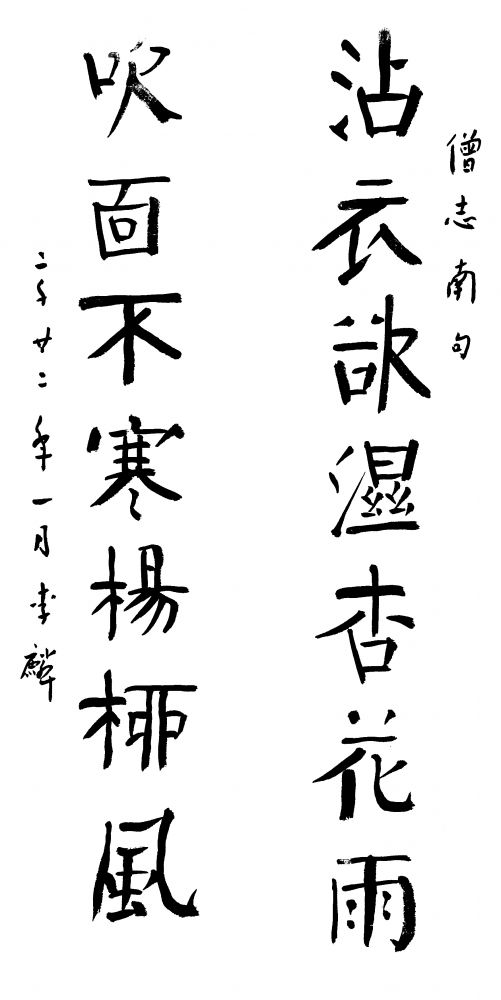 僧志南句
沾衣欲濕杏花雨
吹面不寒楊柳風
二千廿二年一月李